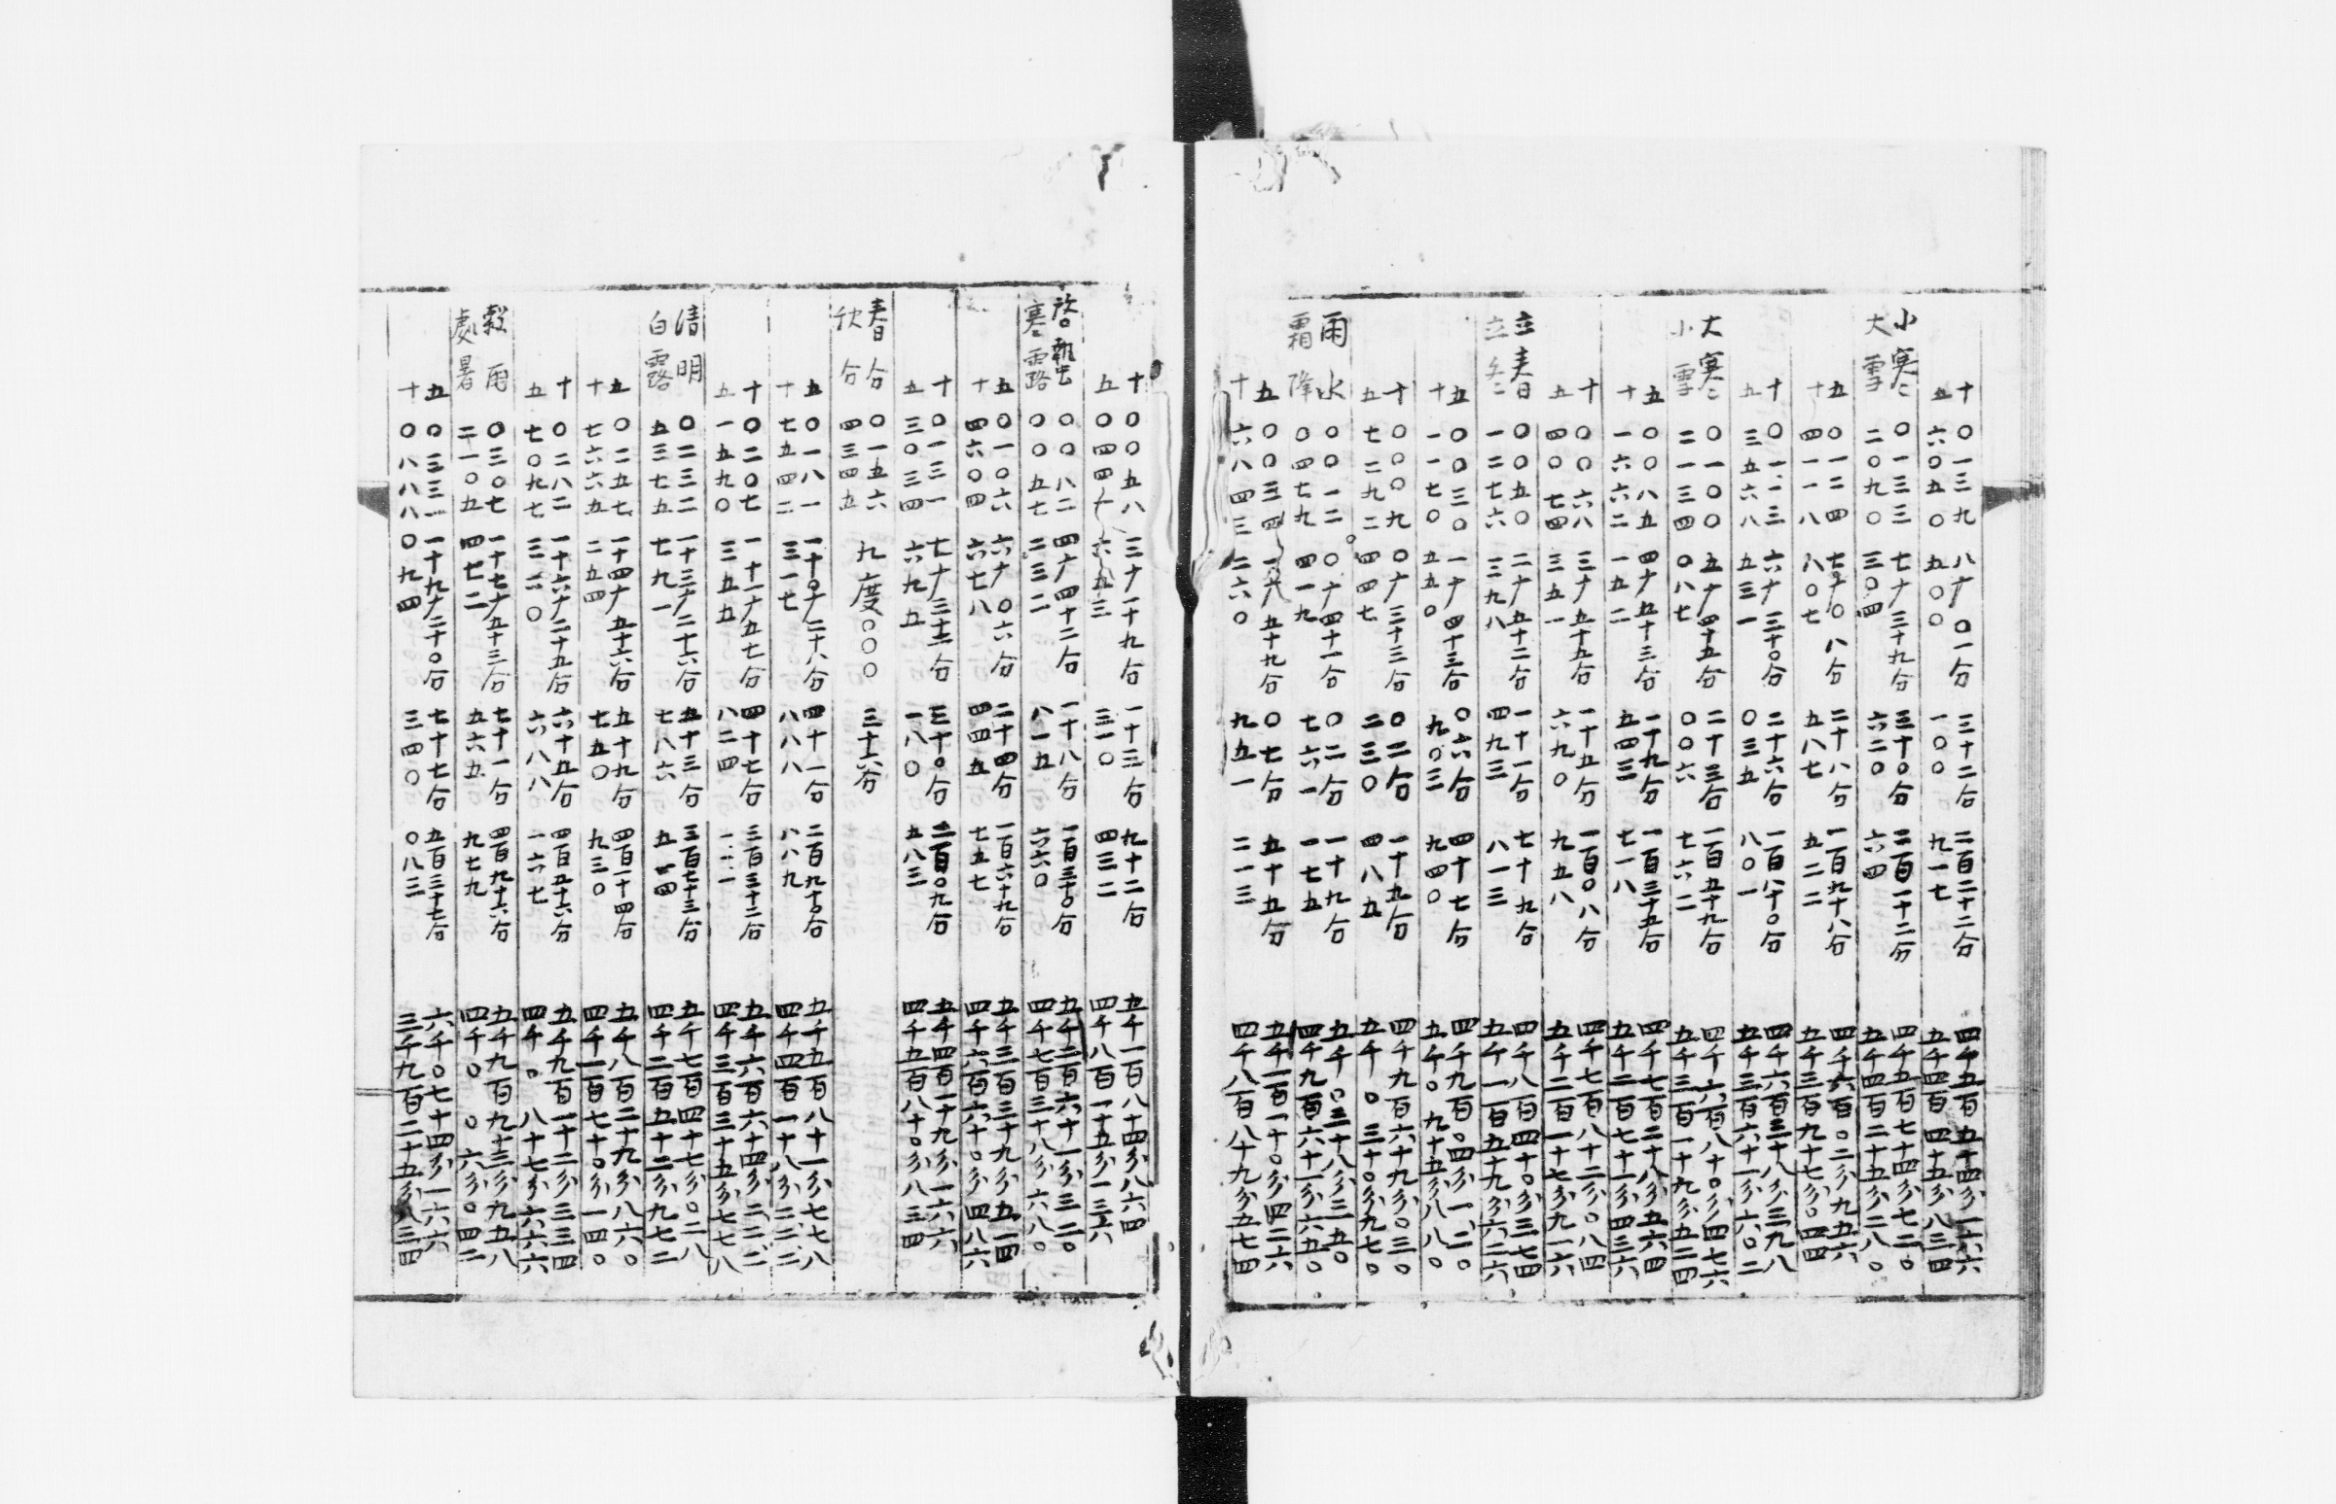 十　〇一三九　八广〇一分　三十二分　二百二十二分　四千五百五十四分一六六
五　六〇五〇　五〇〇　一〇〇　九一七　五千四百四十五分八三四
小寒　〇一三三　七广三十九分　三十〇分　二百一十二分　四千五百七十四分七二〇
大雪　二〇九〇　三〇四　六二〇　六四　五千四百二十五分二八〇
五　〇一二四　七广〇八分　二十八分　一百九十八分　四千六百〇二分九五六
十　四一一八　八〇七　五八七　五二二　五千三百九十七分〇四四
十　〇一一三　六广三十〇分　二十六分　一百八十〇分　四千六百三十八分三九八
五　三五六八　五三一　〇三五　八〇一　五千三百六十一分六〇二
大寒　〇一〇〇　五广四十五分　二十三分　一百五十九分　四千六百八十〇分四七六
小雪　二一三四　〇八七　〇〇六　七六二　五千三百一十九分五二四
五　〇〇八五　四广五十三分　一十九分　一百三十五分　四千七百二十八分五六四
十　一六六二　一五二　五四三　七一八　五千二百七十一分四三六
十　〇〇六八　三广五十九分　一十五分　一百〇八分　四千七百八十二分〇八四
五　四〇七四　三五一　六九〇　九五八　五千二百一十七分九一六
立春　〇〇五〇　二广五十二分　一十一分　七十九分　四千八百四十〇分三七四
立冬　一二七六　三九八　四九三　八一三　五千一百五十九分六二六
五　〇〇三〇　一广四十三分　〇六分　四十七分　四千九百〇四分一二〇
十　一一七〇　五五〇　九〇三　九四〇　五千〇九十五分八八〇
十　〇〇〇九　〇广三十三分　〇二分　一十五分　四千九百六十九分〇三〇
五　七二九二　四四七　二三〇　四八五　五千〇三十〇分九七〇
雨水　〇〇一二　〇广四十一分　〇二分　一十九分　五千〇三十八分三五〇
霜降　〇四七九　四一九　七六一　一七五　四千九百六十一分六五〇
五　〇〇三四　一广五十九分　〇七分　五十五分　五千一百一十〇分四二六
十　六八四三　二六〇　九五一　二一三　四千八百八十九分五七四
十　〇〇五八　三广一十九分　一十三分　九十二分　五千一百八十四分八六四
五　〇四四　六五三　三一〇　四三二　四千八百一十五分一三六
啓蟄　〇〇八二　四广四十二分　一十八分　一百三十〇分　五千二百六十一分三二〇
寒露　〇〇五七　二三二　八一五　六六〇　四千七百三十八分六八〇
五　〇一〇六　六广〇六分　二十四分　一百六十九分　五千三百三十九分五一四
十　四六〇四　六七八　四四五　七五七　四千六百六十〇分四八六
十　〇一三一　七广三十三分　三十〇分　二百〇九分　五千四百一十九分一六六
五　三〇三四　六九五　一八〇　五八三　四千五百八十〇分八三四
春分　〇一五六　九度〇〇〇　三十六分
秋分　四三四五
五　〇一八一　一十〇广二十八分　四十一分　二百九十〇分　五千五百八十一分七七八
十　七五四二　三一七　八八八　八八九　四千四百一十八分二二二
十　〇二〇七　一十一广五七分　四十七分　三百三十二分　五千六百六十四分二二二
五　一五九〇　三五五　八二四　一一一　四千三百三十五分七七八
清明　〇二三二　一十三广二十六分　五十三分　三百七十三分　五千七百四十七分〇二八
白露　五三七五　七九一　七八六　五一四　四千二百五十二分九七二
五　〇二五七　一十四广五十六分　五十九分　四百一十四分　五千八百二十九分八六〇
十　七六六五　二五四　七五〇　九三〇　四千一百七十〇分一四〇
十　〇二八二　一十六广二十五分　六十五分　四百五十六分　五千九百一十二分三三四
五　七〇九七　三二〇　六八八　一六七　四千〇八十七分六六六
穀雨　〇三〇七　一十七广五十三分　七十一分　四百九十六分　五千九百九十三分九五八
處暑　二一〇五　四七二　五六五　九七九　四千〇〇六分〇四二
五　〇三三一　一十九广二十〇分　七十七分　五百三十七分　六千〇七十四分一六六
十　〇八八八　〇九四　三四〇　〇八三　三千九百二十五分八三四